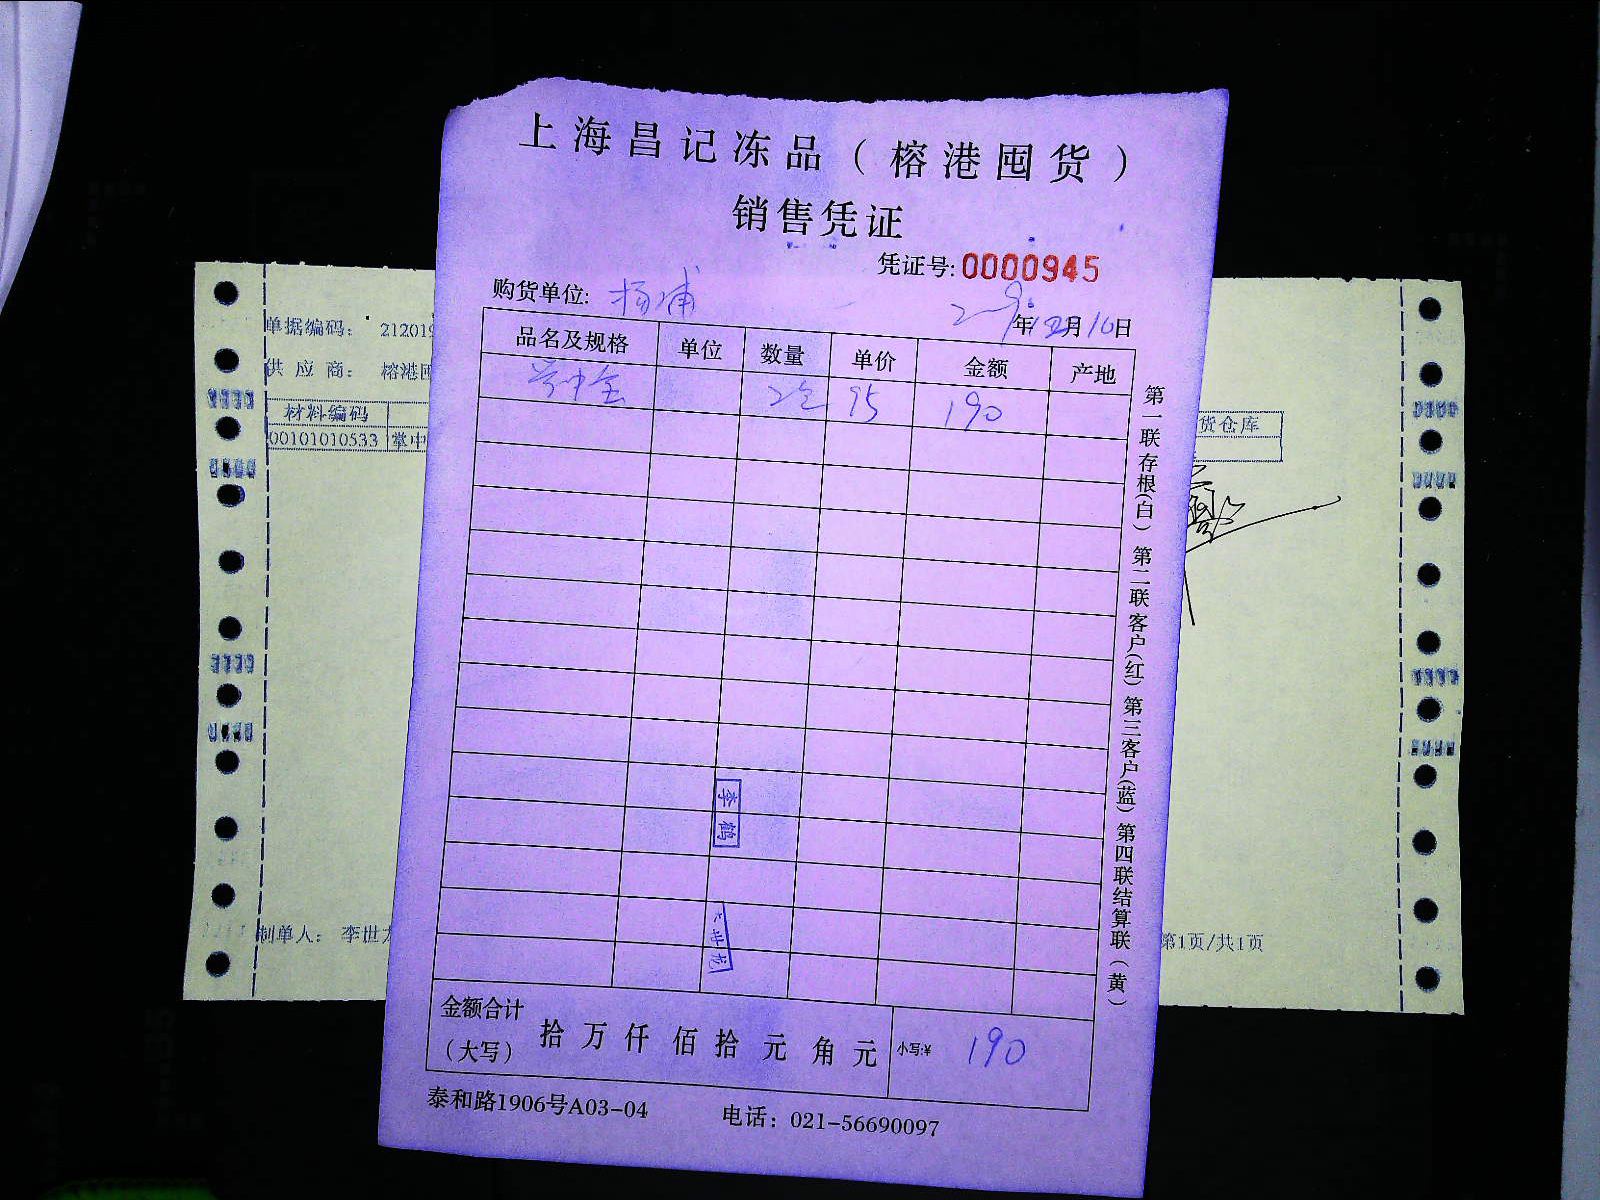 上海昌记冻品（榕港囤货）
销售凭证
凭证号:0000945
购货单位: 杨浦
年12月10日
品名及规格 单位 数量 单价 金额 产地
掌中宝 2包 95 190
第一联存根(白) 第二联客户(红) 第三客户(蓝) 第四联结算联(黄)
李鹤
金额合计
(大写) 拾 万 仟 佰 拾 元 角 元 小写:¥ 190
泰和路1906号A03-04 电话：021-56690097
单据编码： 212019
供应商： 榕港囤
材料编码
00101010533 掌中
货仓库
制单人： 李世
第1页/共1页